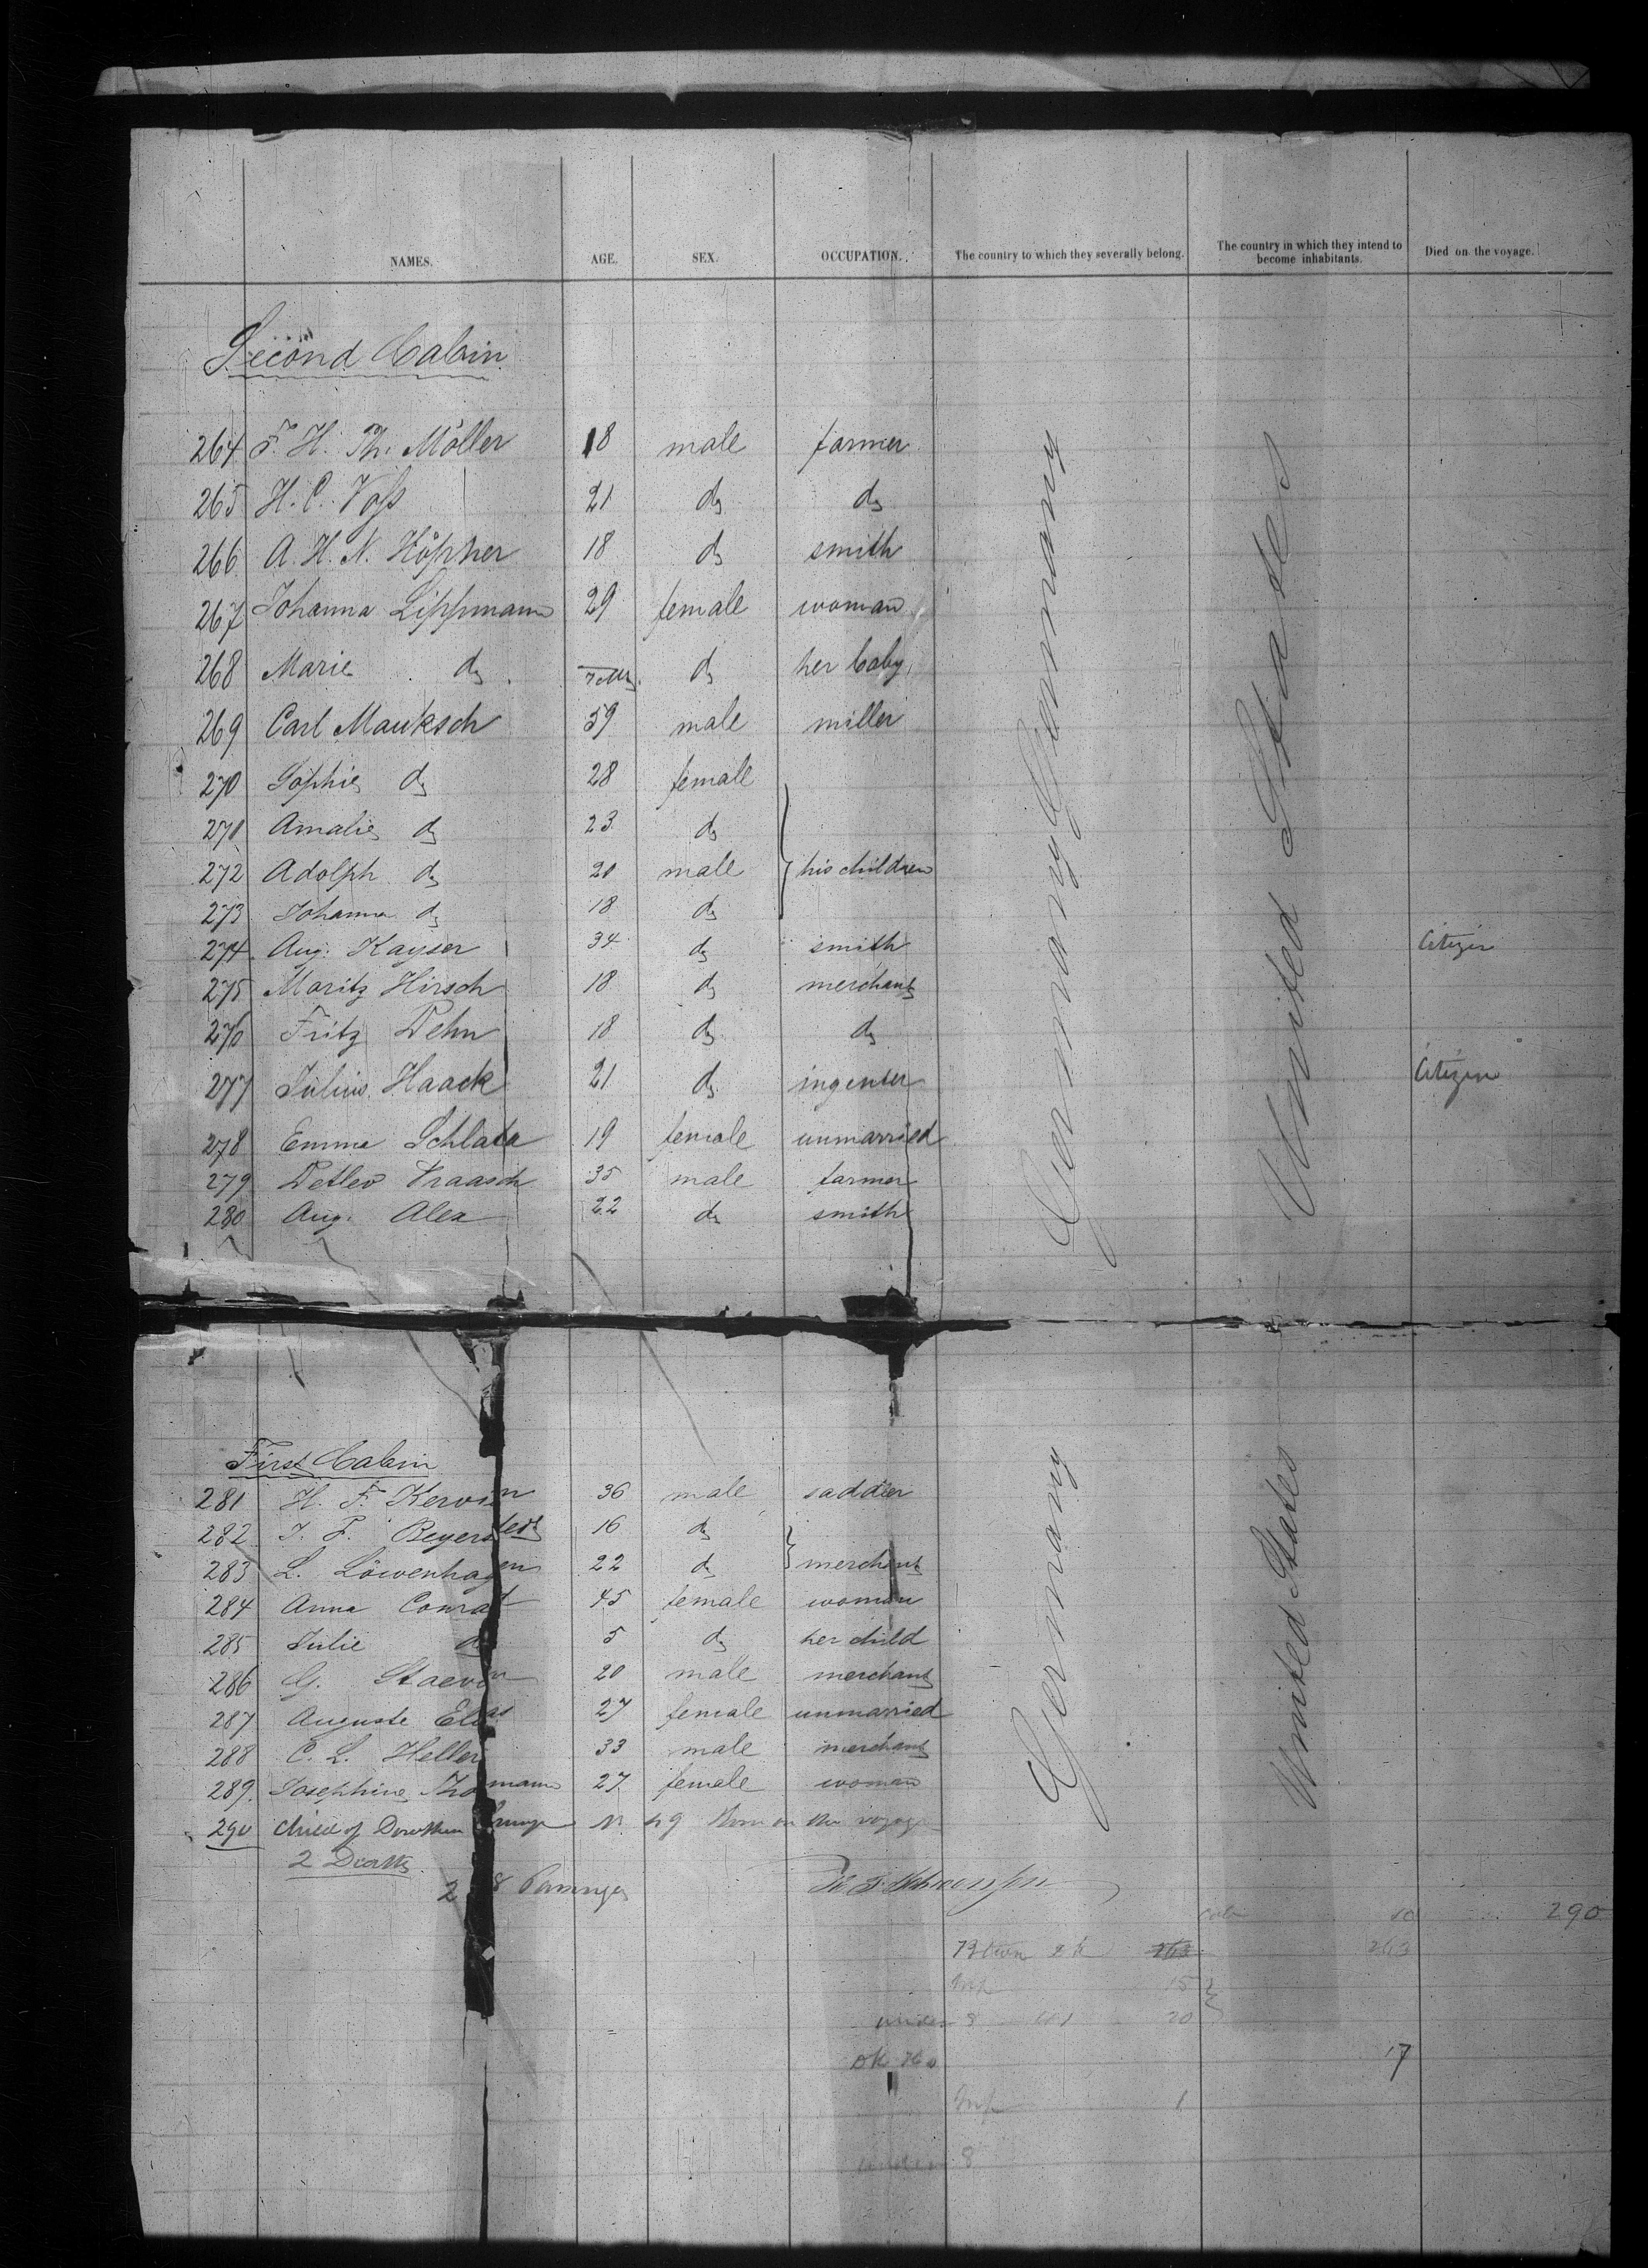 NAMES. AGE. SEX. OCCUPATION. The country to which they severally belong. The country in which they intend to become inhabitants. Died on the voyage.
Second Cabin
264 F. H. Th. Möller 18 male farmer
265 H. C. Voss 21 do do
266 A. H. N. Höpner 18 do smith
267 Johanna Lippmann 29 female woman
268 Marie do 7 Mts. do her baby
269 Carl Mauksch 59 male miller
270 Sophie do 28 female
271 Amalie do 23 do
272 Adolph do 20 male } his children
273 Johanna do 18 do
274 Aug. Kayser 34 do smith Citizen
275 Moritz Hirsch 18 do merchant
276 Fritz Dehn 18 do do
277 Julius Haack 21 do ingenier Citizen
278 Emma Schlata 19 female unmarried
279 Detlev Traasch 35 male farmer
280 Aug. Alex 22 do smith
Germany Germany
United States
First Cabin
281 H. F. Kervin 36 male saddler
282 J. F. Beyerstedt 16 do
283 L. Löwenhagen 22 do } merchant
284 Anna Conrat 45 female woman
285 Julie do 5 do her child
286 G. Staevin 20 male merchant
287 Auguste Elias 27 female unmarried
288 C. L. Heller 33 male merchant
289. Josephine Thomann 27 female woman
290 child of Dorothea Born on the voyage
Germany
United States
2 Deaths
2 8 Passenges
10 290
263 263
Inf 15
under 8 20
OK
17
Inf 1
under 8